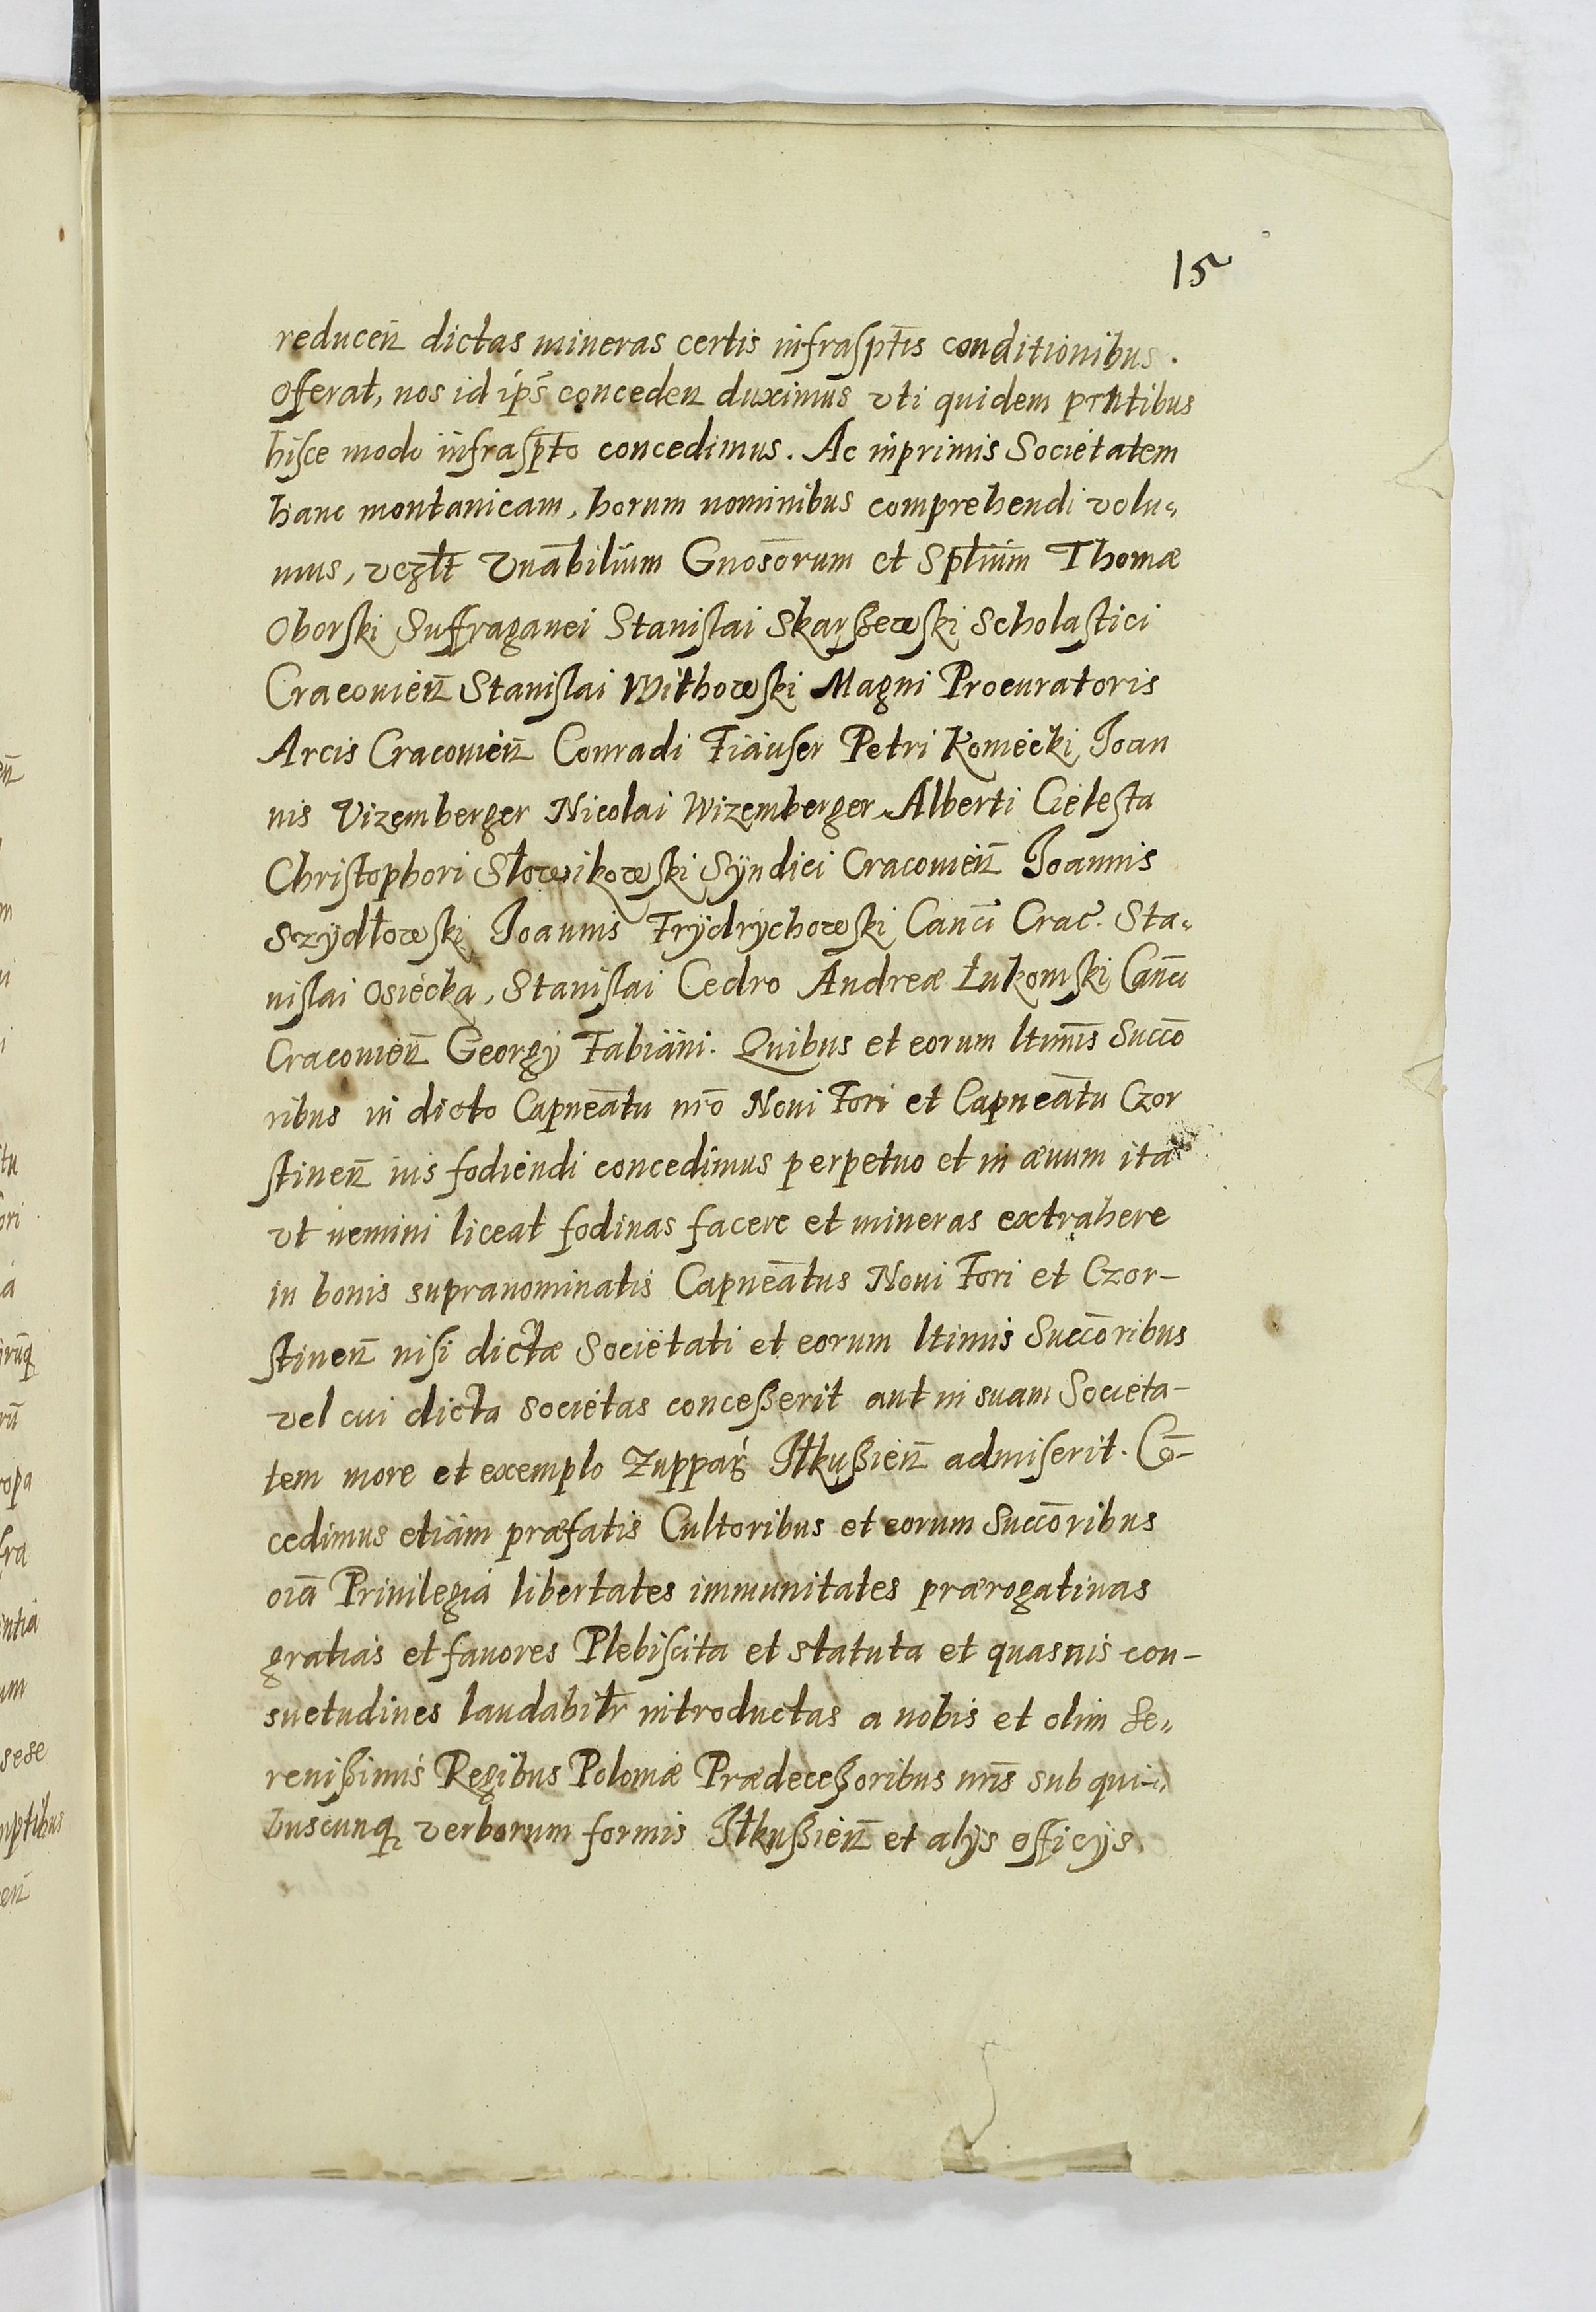 15
reduceñ dictas mineras certis infrasptīs conditionibus.
offerat, nos id ip̄s conceden duximus vti quidem prntibus
hisce modo infrasp̄to concedimus. Ac inprimis Societatem
hanc montanicam, horum nominibus comprehendi volu„
mus, vczlt Vnābilium Gnosōrum et Sptiūm Thomæ
Oborski Suffraganei Stanislai Skarßewski Scholastici
Cracovień Stanislai Withowski Magni Procuratoris
Arcis Cracovień Conradi Tiäuser Petri Koniecki Joan
nis Vizemberger Nicolai Wizemberger Alberti Cielesta
Christophori Słowikowski Sÿndici Cracovień Joannis
Szydłowski Joannis Frÿdrÿchowski Canci Crac̄. Sta„
nislai Osiecka, Stanislai Cedro Andreæ Łukomski Canci
Cracovień Georgÿ Fabiani. Quibus et eorum ltimīs Succō
ribus in dicto Capneātu nrō Noui Fori et Capneātu Czor
stineñ ius fodiendi concedimus perpetuo et in æuum ita
vt nemini liceat fodinas facere et mineras extrahere
in bonis supranominatis Capneātus Noui Fori et Czor-
stineñ nisi dictæ Societati et eorum ltimis Succōribus
vel cui dicta Societas conceßerit aut in suam Societa-
tem more et exemplo Zuppar̄ Ilkußień admiserit. Cō-
cedimus etiam præfatis Cultoribus et eorum Succōribus
oīa Priuilegia libertates immunitates prærogatiuas
gratias et fauores Plebiscita et statuta et quasuis con-
suetudines laudabiłr introductas a nobis et olim Se„
renißimis Regibus Poloniæ Prædeceßoribus nrīs sub qui-
buscunq; verborum formis Ilkußień et alÿs officÿs.